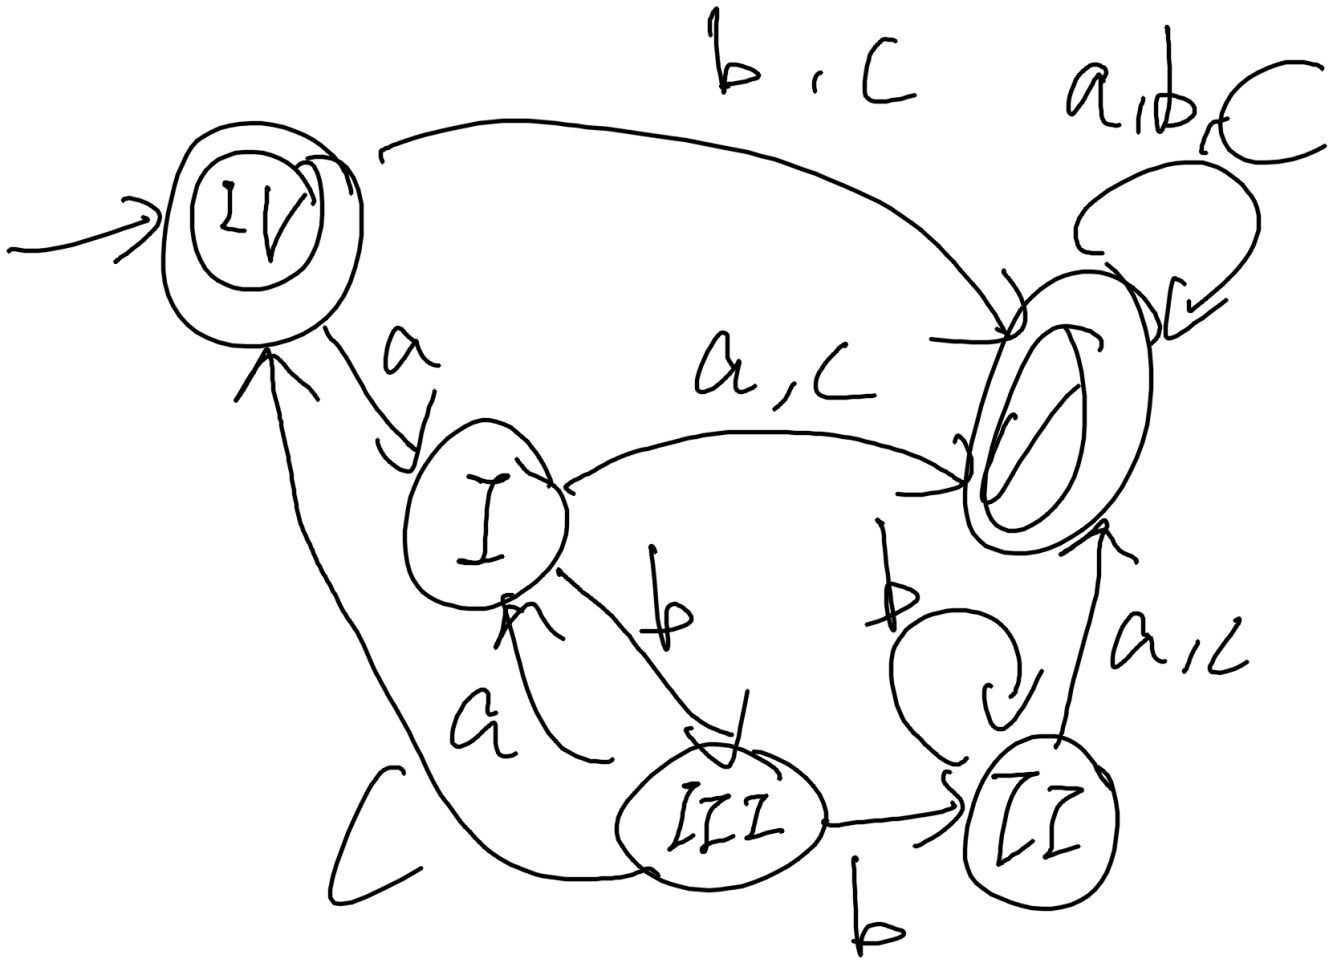 b, c
a, b, c
IV
a
a, c
I
b
b
a, c
a
III
II
c
b